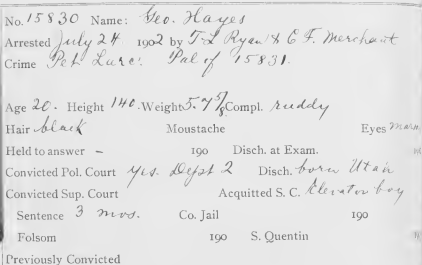 No. 15830 Name: Geo. Hayes
Arrested July 24 1902 by T L Ryan & C F. Merchant
Crime Pet Larc. Pal of 15831.
Age 20. Height 140. Weight 5.7 5/8 Compl. ruddy
Hair black Moustache Eyes
Held to answer - 190 Disch. at Exam.
Convicted Pol. Court yes. Dept 2 Disch. born Utah
Convicted Sup. Court Acquitted S. C. Elevator boy
Sentence 3 mos. Co. Jail 190
Folsom 190 S. Quentin
Previously Convicted